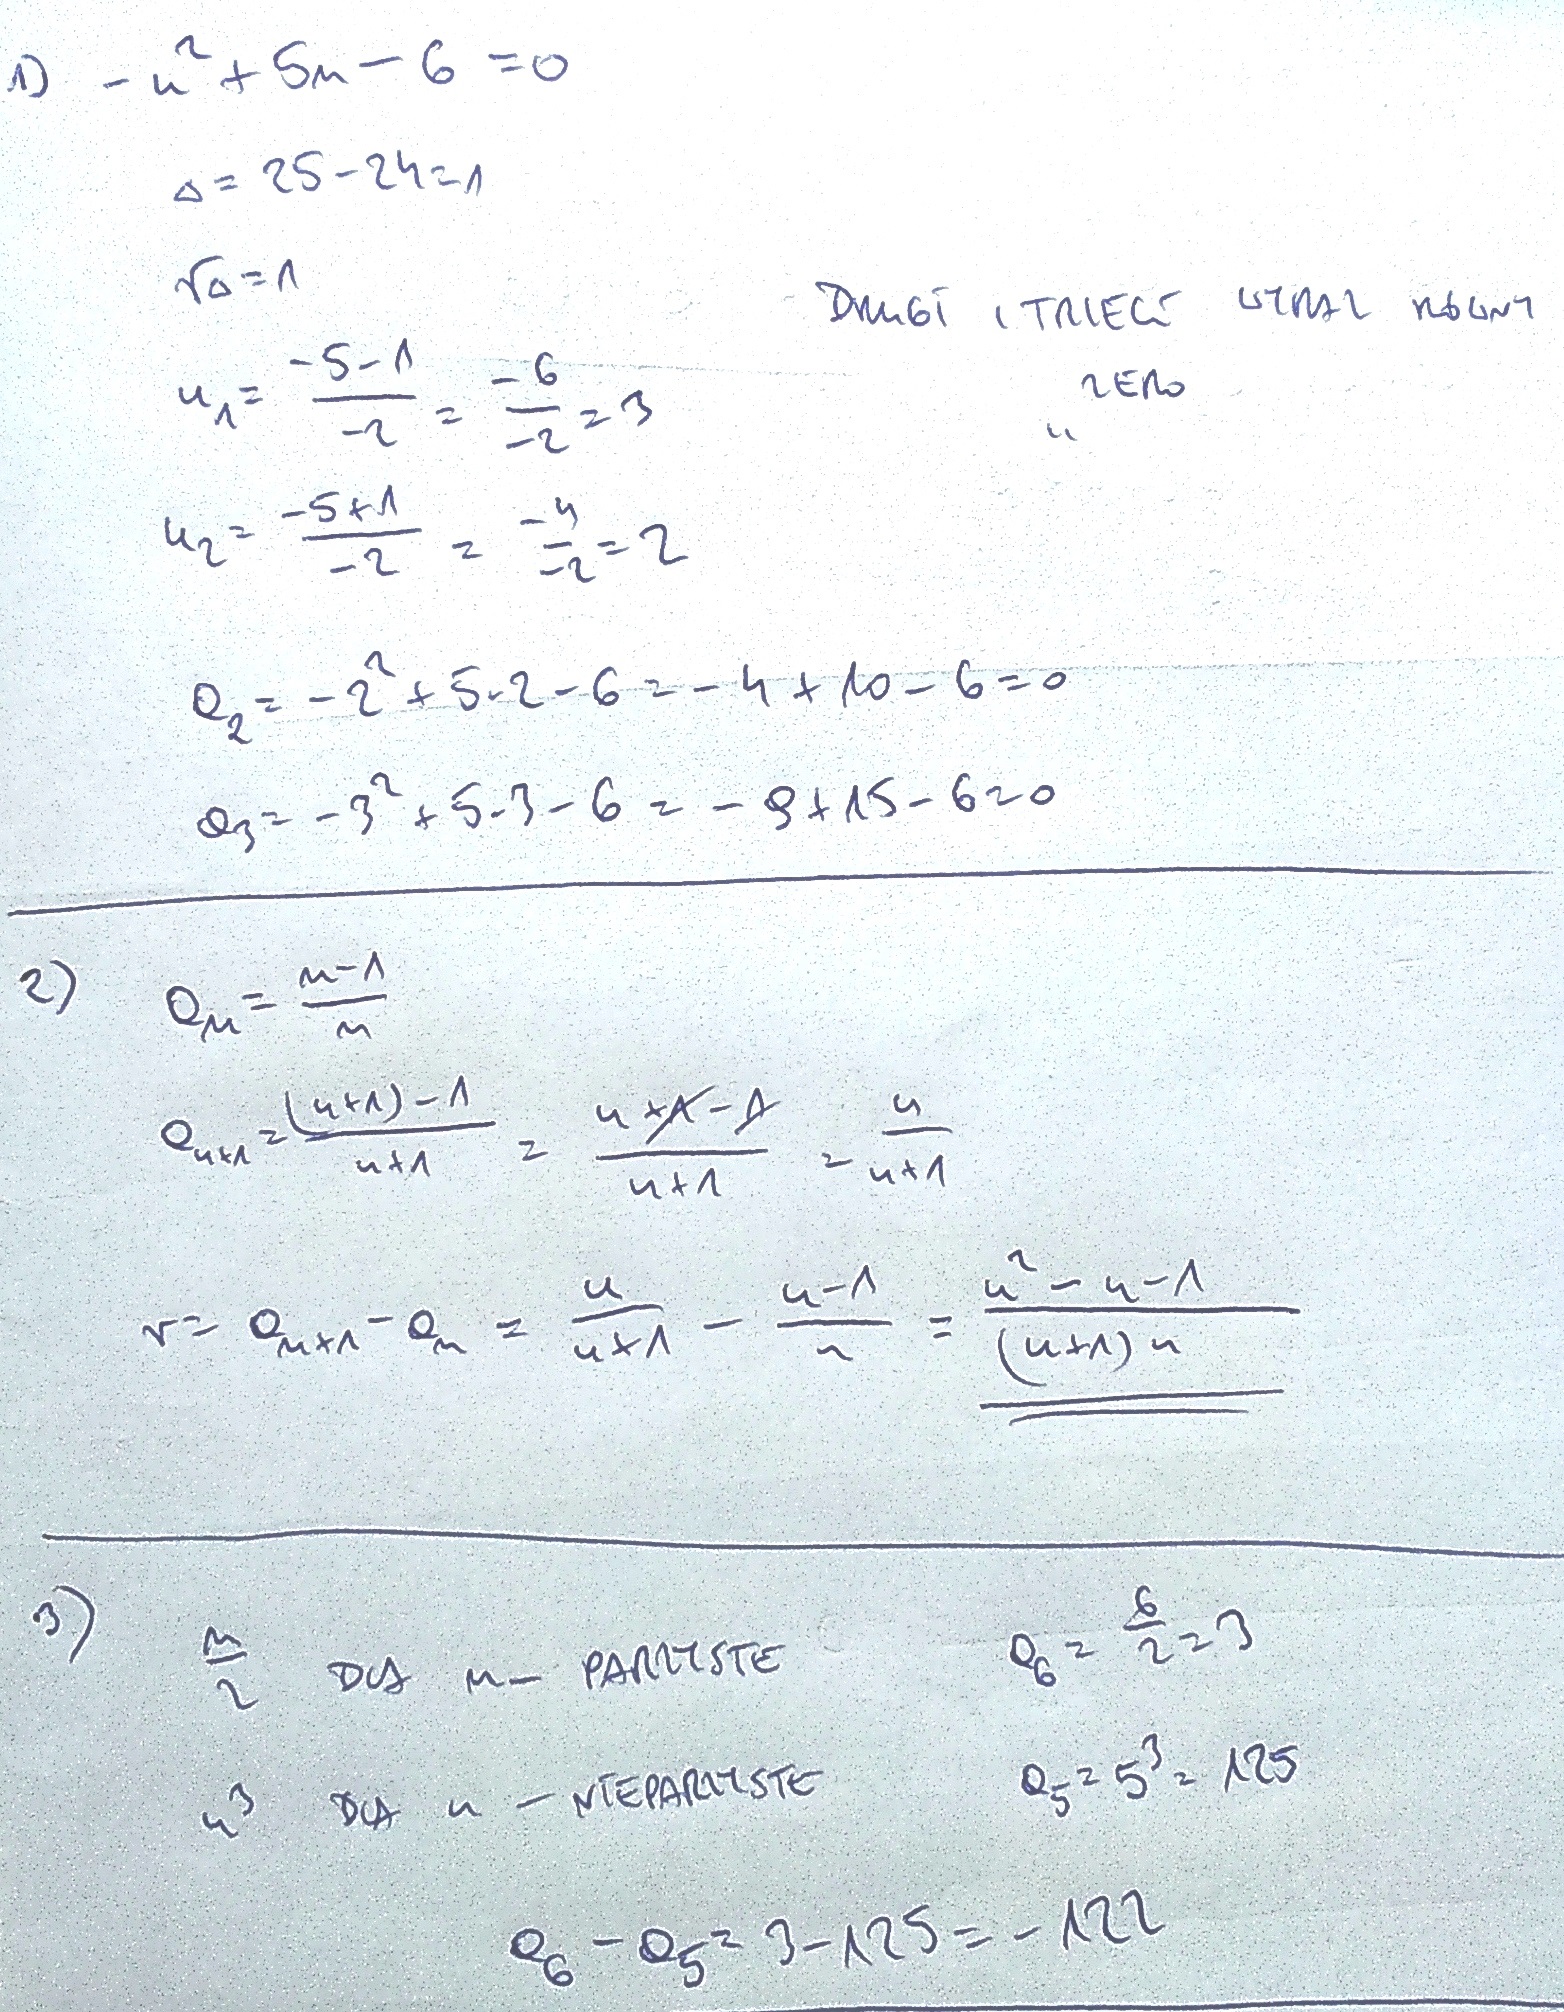 1) -n²+5n-6=0
Δ=25-24=1
√Δ=1
DRUGI I TRZECI WYRAZ RÓWNY
ZERO
n₁= (-5-1)/(-2) = (-6)/(-2) =3
n₂= (-5+1)/(-2) = (-4)/(-2) =2
a₂=-2²+5·2-6=-4+10-6=0
a₃=-3²+5·3-6=-9+15-6=0
2) aₙ= (n-1)/n
aₙ₊₁= ((n+1)-1)/(n+1) = (n+1-1)/(n+1) = n/(n+1)
r= aₙ₊₁-aₙ = n/(n+1) - (n-1)/n = (n²-n-1)/((n+1)n)
3) n/2 DLA n- PARZYSTE a₆= 6/2 =3
n³ DLA n - NIEPARZYSTE a₅=5³=125
a₆-a₅=3-125=-122